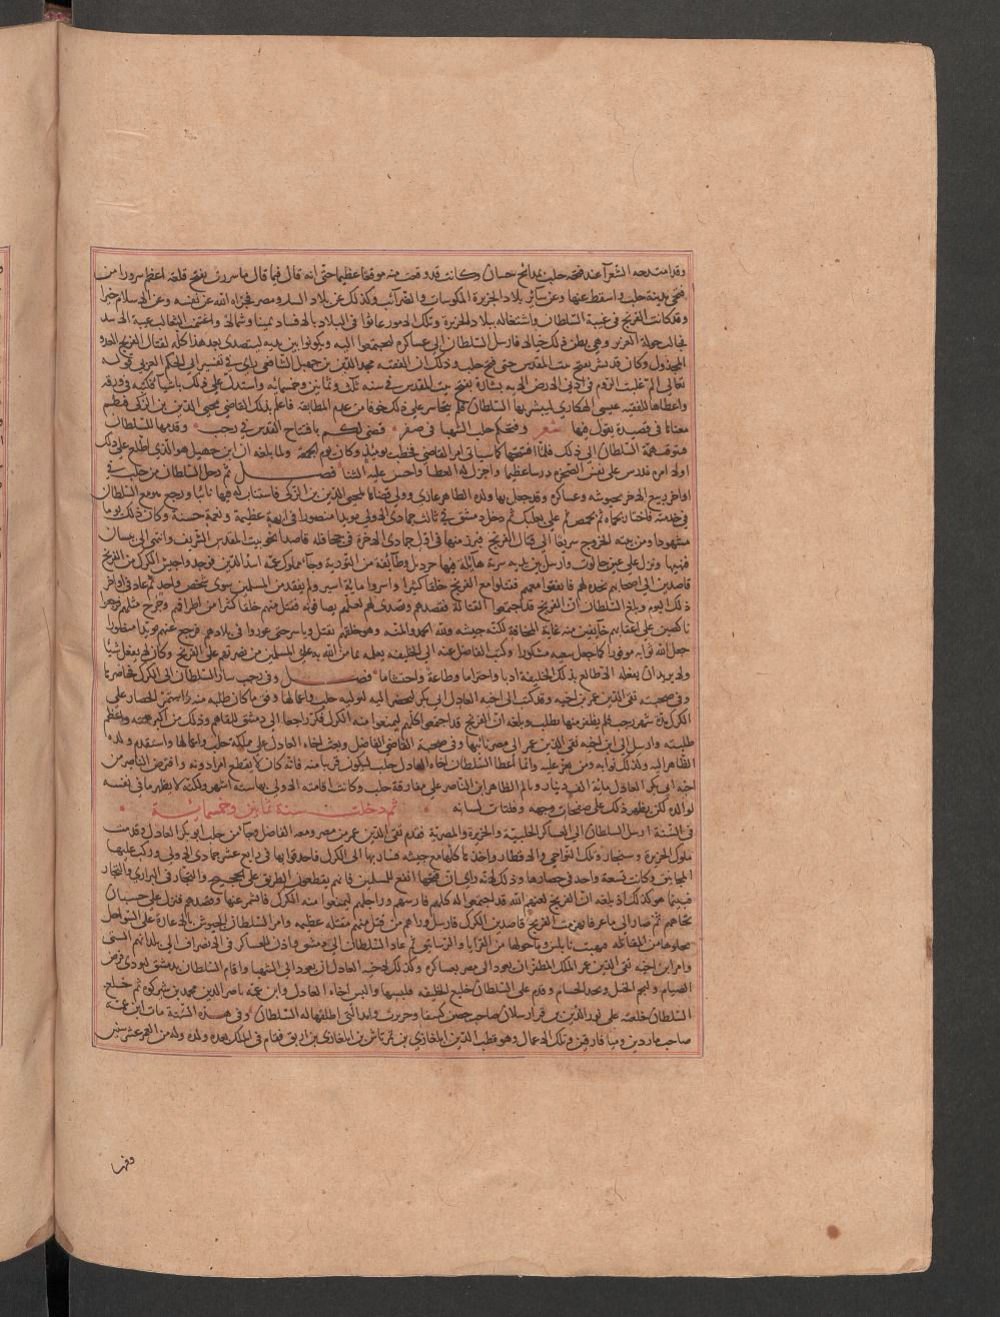 وقد امتدحه الشعرآ عند فتحه حلب بمدائح حسان وكانت قد وقعت منه موقعا عظيما حتى انه قال فيما قال ما سررت بفتح قلعة اعظم سرورا من
فتحي مدينة حلب واسقط عنها وعن سائر بلاد الجزيرة المكوسات والضرآئب وكذلك عن بلاد الشام ومصر فجزاه الله عن نفسه وعن الاسلام خيرا
وقد كانت الفرنج في غيبة السلطان واشتغاله ببلاد الجزيرة وتلك الامور عاثوا في البلاد بالافساد يمينا وشمالا واغتنمت الثعالب غيبة الاسد
فجالت حولة العرين وهي تظن ذلك خيالا فارسل السلطان الى عساكره ليجتمعوا اليه ويكونوا بين يديه ليتصدى بعد هذا كله لقتال الفرنج العدو
المخذول وكان قد بشر بفتح بيت المقدس حتى فتح حلب وذلك ان الفقيه مجد الدين بن جهبل الشافعي راى في تفسير ابي الحكم العربي قوله
تعالى الم غلبت الروم في ادنى الارض الآية بشارة بفتح بيت المقدس في سنة ثلاث وثمانين وخمسمائة واستدل على ذلك باشيا فكتبه في ورقة
واعطاها للفقيه عيسى الهكاري ليبشر بها السلطان فلم يتجاسر على ذلك خوفا من عدم المطابقة فاعلم بذلك القاضي محيي الدين بن الزكي فنظم
معناها في قصيدة يقول فيها شعر وفتحكم حلب الشهبا في صفر قضى لكم بافتتاح القدس في رجب وقدمها للسلطان
فتوقت همة السلطان الى ذلك فلما افتتحها كما سياتي امر القاضي فخطب يومئذ وكان يوم الجمعة ولما بلغه ان ابن جهبل هو الذي اطلع على ذلك
اولا امره فدرس على نفس الصخرة درسا عظيما واجزل له العطا واحسن عليه الثنا فصل ثم رحل السلطان من حلب في
اواخر ربيع الاخر بجيوشه وعساكره وقد جعل بها ولده الظاهر غازي وولى قضاها لمحيي الدين بن الزكي فاستناب له فيها نائبا ورجع هو مع السلطان
في خدمته فاجتاز بحماه ثم بحمص ثم على بعلبك ثم دخل دمشق في ثالث جمادى الاولى مويدا منصورا في ابهة عظيمة ونعمة حسنة وكان ذلك يوما
مشهودا ومن نيته الخروج سريعا الى قتال الفرنج فبرز منها في اول جمادى الاخرة في جحافله قاصدا نحو بيت المقدس الشريف وانتهى الى بيسان
فنهبها ونزل على عين جالوت وارسل بين يديه سرية هايلة فيها جرديك وطائفة من النورية وجآ مملوك عمه اسد الدين فوجدوا جيش الكرك من الفرنج
قاصدين الى اصحابهم نجدة لهم فالتقوا معهم فقتلوا مع الفرنج خلقا كثيرا واسروا ماية اسير ولم يفقد من المسلمين سوى شخص واحد ثم عاد في اواخر
ذلك اليوم وبلغ السلطان ان الفرنج قد اجتمعوا لقتاله فقصدهم وتصدى لهم لعلهم يصافونه فقتل منهم خلقا كثيرا من اطرافهم وجرح مثلهم فرجعوا
ناكصين على اعقابهم خآئفين منه غاية المخافة لكثرة جيشه ولله الحمد والمنة وهو خلفهم يقتل وياسر حتى غوروا في بلادهم فرجع عنهم مويدا مظفورا
جعل الله ثوابه موفورا كما جعل سعيه مشكورا وكتب الفاضل عنه الى الخليفة يعلمه بما من الله به على المسلمين من نصرتهم على الفرنج وكان لا يفعل شيئا
ولا يريد ان يفعله الا طالع بذلك الخليفة ادبا واحتراما وطاعة واحتشاما فصل وفي رجب سار السلطان الى الكرك فحاصرها
وفي صحبته تقي الدين عمر بن اخيه وقد كتب الى اخيه العادل ابي بكر ليحضر اليه ليوليه حلب واعمالها وفق ما كان طلبه منه واستمر الحصار على
الكرك مدة شهر رجب فلم يظفر منها بطلب وبلغه ان الفرنج قد اجتمعوا كلهم ليمنعوا منه الكرك فكر راجعا الى دمشق للقاهم وذلك من اكبر همته واعظم
طلبته وارسل الى ابن اخيه تقي الدين عمر الى مصر نائبها وفي صحبته القاضي الفاضل وبعث اخاه العادل على مملكة حلب واعمالها واستقدم ولده
الظاهر اليه وكذلك نوابه ومن يعز عليه وانما اعطا السلطان اخاه العادل حلب ليكون قريبا منه فانه كان لا يقطع امرا دونه واقترض الناصر من
اخيه ابي بكر العادل ماية الف دينار وتالم الظاهر بن الناصر على مفارقة حلب وكانت اقامته الاولى بها ستة اشهر ولكنه لا يظهر ما في نفسه
لوالده لكن يظهر ذلك على صفحات وجهه وفلتات لسانه ثم دخلت سنة ثمانين وخمسمائة
في السنة ارسل السلطان الى العساكر الحلبية والجزيرة والمصرية فقدم تقي الدين عمر من مصر ومعه الفاضل وجآ من حلب ابو بكر العادل وقدمت
ملوك الجزيرة وسنجار وتلك النواحي والاقطار واخذها كلها مع جيشه فسار بها الى الكرك فاحدقوا بها في رابع عشر جمادى الاولى وركب عليها
المجانيق وكانت تسعة واخذ في حصارها وذلك لانه راى ان فتحها انفع للمسلمين فانهم يقطعون الطريق على الحجيج والتجار في البراري والبحار
فبينما هو كذلك اذ بلغه ان الفرنج لعنهم الله قد اجتمعوا له كلهم فارسهم وراجلهم ليمنعوا منه الكرك فانشمر عنها وقصدهم فنزل على حسبان
تجاههم ثم صار الى ماعر فانهزمت الفرنج قاصدين الكرك فارسل وراهم من قتل منهم مقتلة عظيمة وامر السلطان الجيوش بالاغارة على السواحل
لخلوها من المقاتلة فنهبت نابلس وما حولها من القرايا والرساتيق ثم عاد السلطان الى دمشق واذن للعساكر في الانصراف الى بلدانهم الشتى
وامر ابن اخيه تقي الدين عمر الملك المظفر ان يعود الى مصر بعساكره وكذلك لاخيه العادل ان يعود الى الشهبا واقام السلطان بدمشق ليودي فرض
الصيام وليجم الخيل ويحد الحسام وقدم على السلطان خلع الخليفة فلبسها والبس اخاه العادل وابن عمه ناصر الدين محمد بن شيركوه ثم خلع
السلطان خلعته على نور الدين بن قرا ارسلان صاحب حصن كيفا وخرتبرت وآمد التي اطلقها له السلطان وفي هذه السنة مات ابن عمه
صاحب ماردين وميا فارقين وتلك الاعمال وهو قطب الدين ايلغازي بن تمرتاش بن ايلغازي بن ارتق فقام في الملك بعده ولده وله من العمر عشر سنين
وفيها